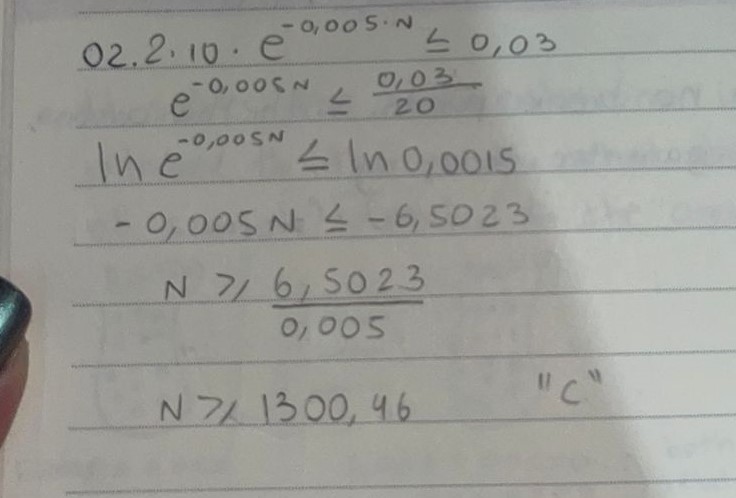 02. 2·10·e^-0,005·N ≤ 0,03
e^-0,005N ≤ 0,03/20
ln e^-0,005N ≤ ln 0,0015
-0,005N ≤ -6,5023
N ≥ 6,5023/0,005
N ≥ 1300,46 "C"